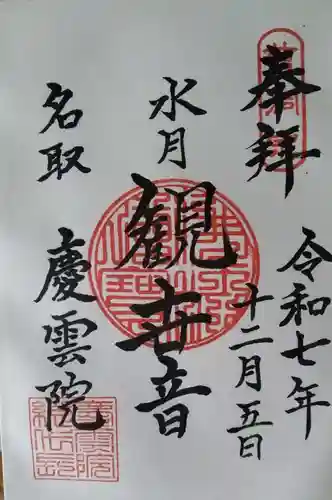 奉拝
令和七年
十二月五日
水月
観世音
名取
慶雲院